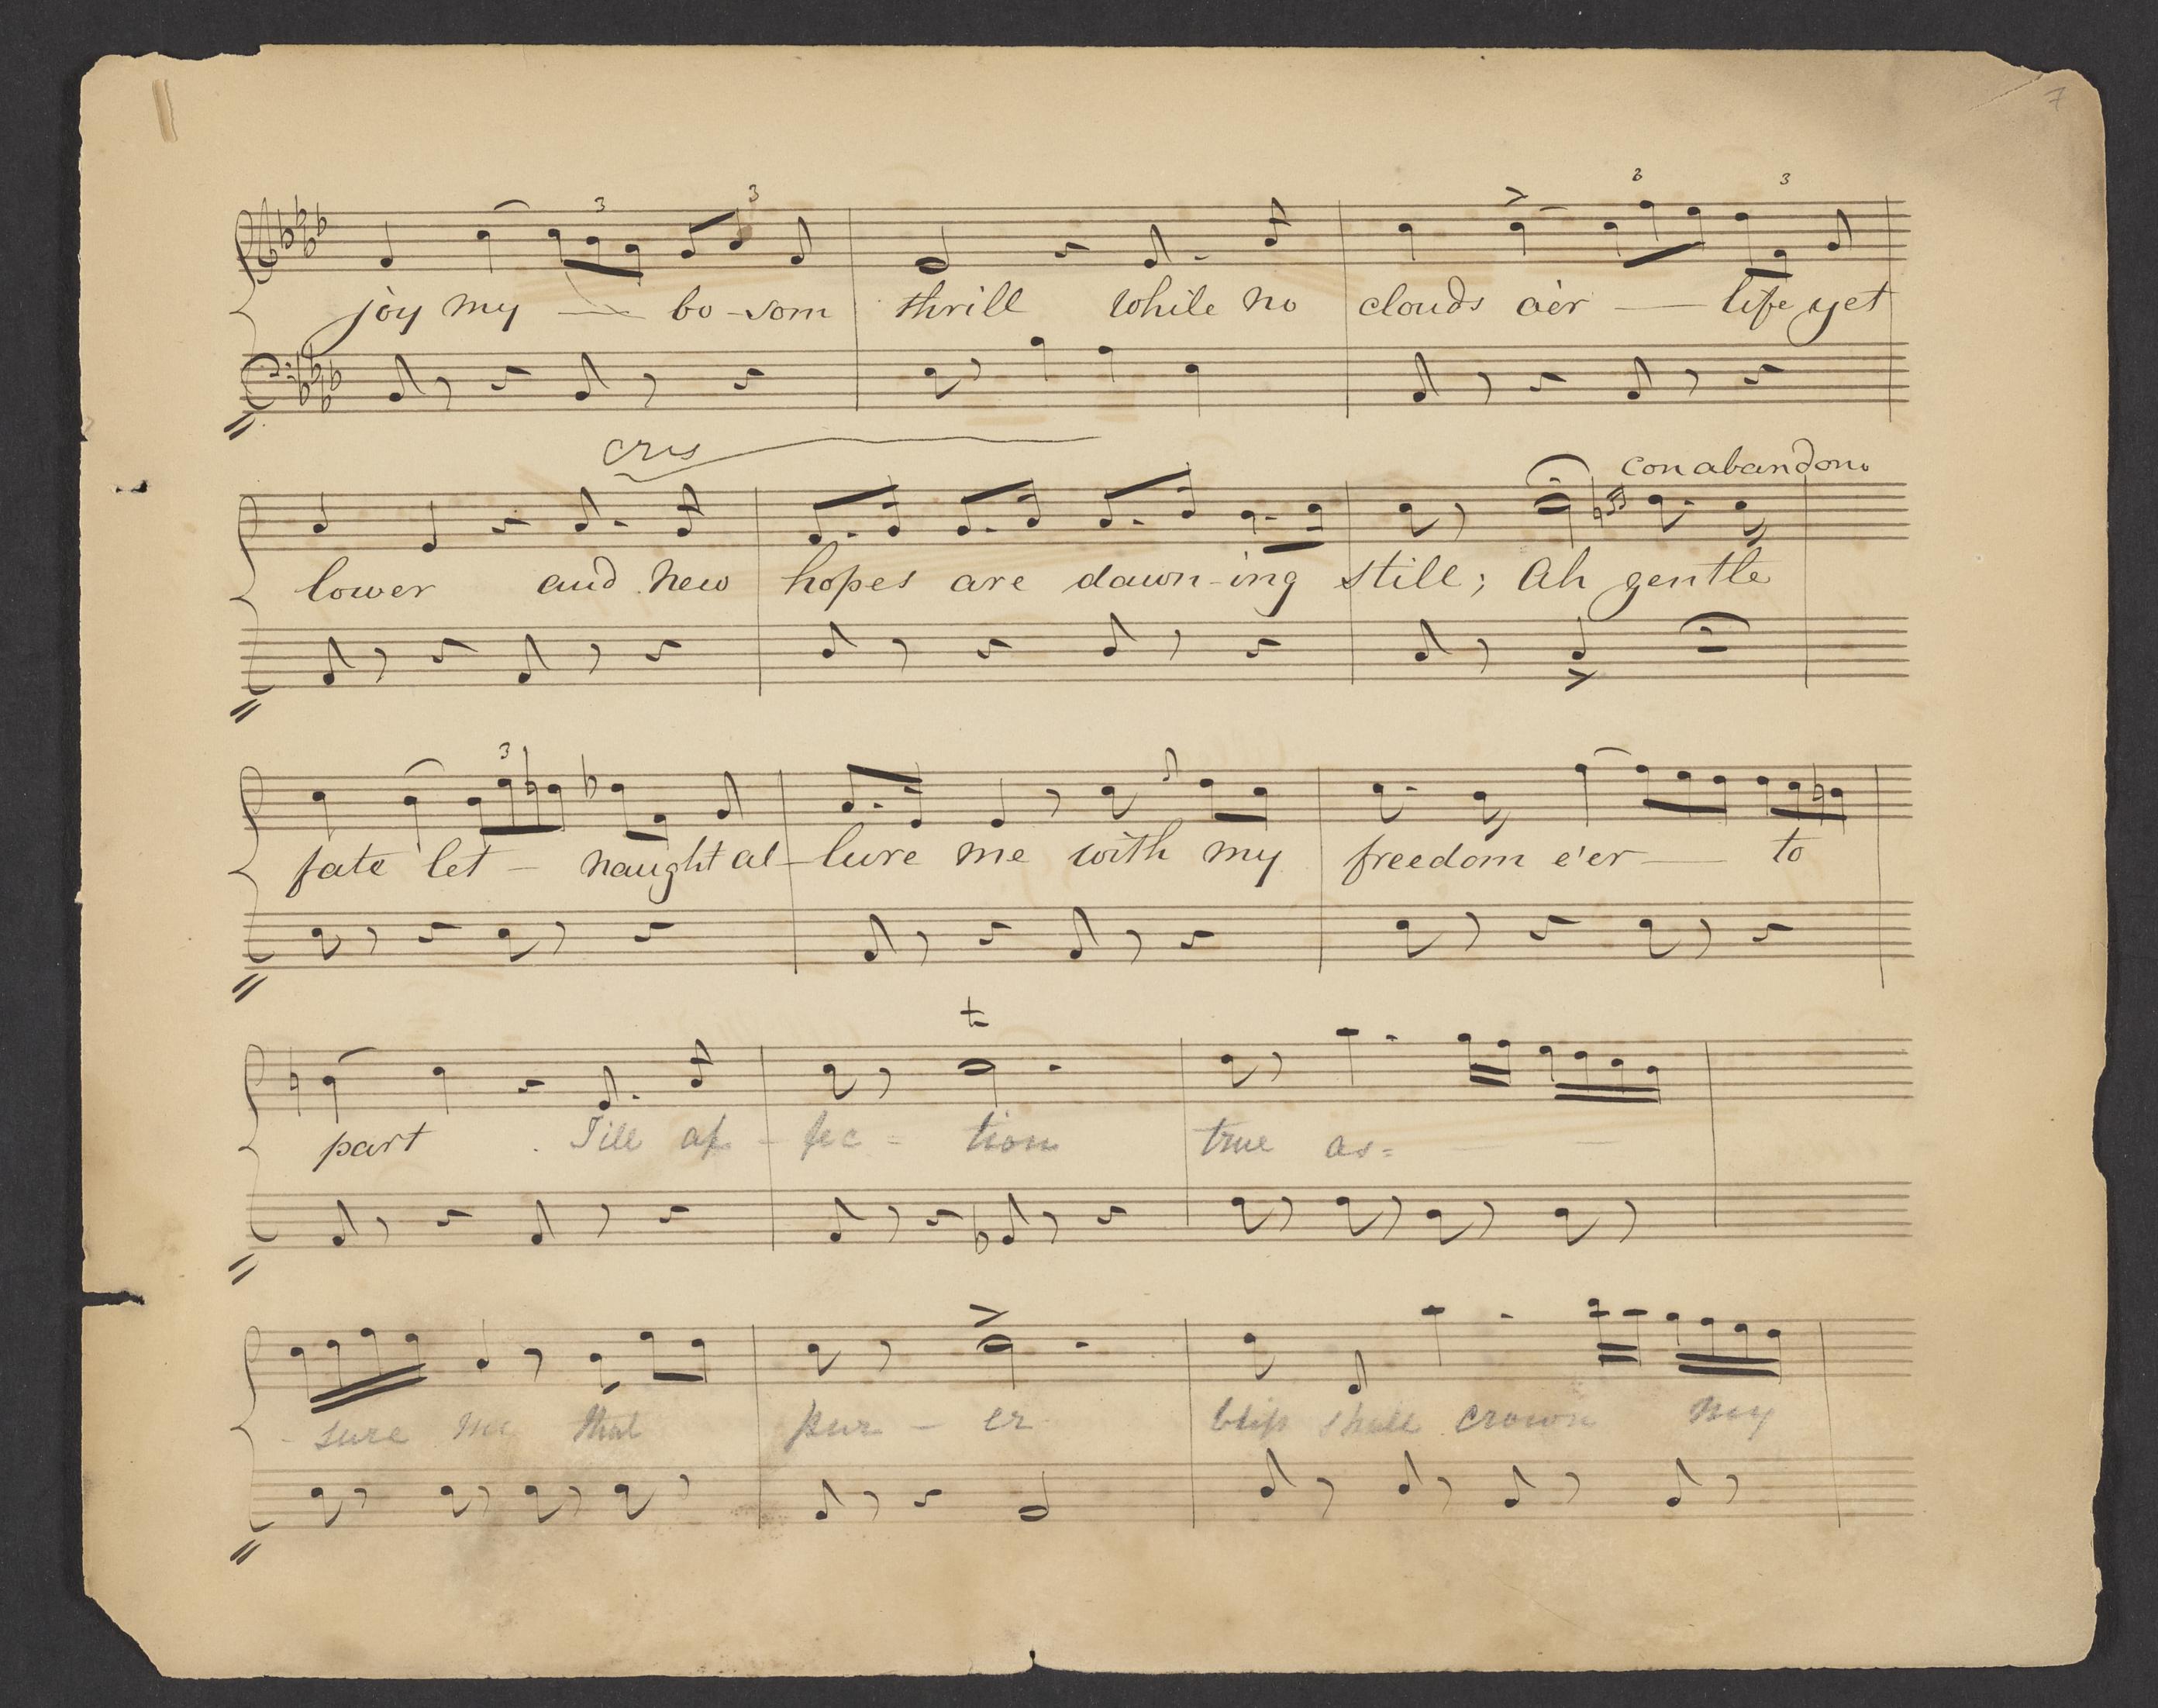 7
3 3 3 3
joy my — bo-som thrill while no clouds oèr — life yet
cres
con abandono
lower and new hopes are dawn-ing still; Ah gentle
3
fate let — naught al-lure me with my freedom e'er — to
t
part Till af - fec = tion true as=
- sure me that pur - er bliss shall crown my